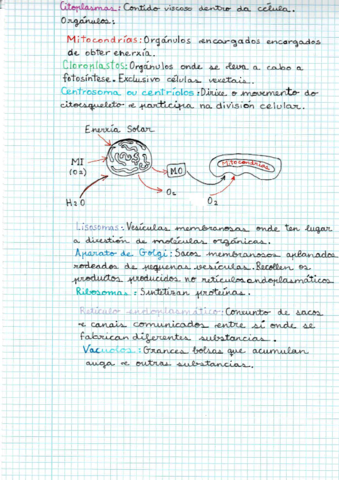 Citoplasmas: Contido viscoso dentro da célula.
Orgánulos:
Mitocondrias: Orgánulos encargados encargados
de obter enerxía.
Cloroplastos: Orgánulos onde se leva a cabo a
fotosíntese. Exclusivo células vexetais.
Centrosoma ou centríolos: Dirixe o movemento do
citoesqueleto e participa na división celular.
Enerxía Solar
MI
(O2)
H2O
MO
O2
Mitocondrias
O2
Lisosomas: Vesículas membranosas onde ten lugar
a dixestión de moléculas orgánicas.
Aparato de Golgi: Sacos membranosos aplanados
rodeados de pequenas vesículas. Recollen os
productos producidos no retículoendoplasmático
Ribosomas: Sintetizan proteínas.
Retículo endoplasmático: Conxunto de sacos
e canais comunicados entre sí onde se
fabrican diferentes substancias.
Vacuolos: Grances bolsas que acumulan
auga e outras substancias.